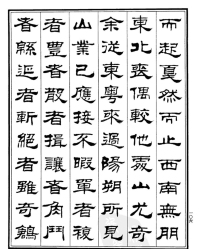 而起戛然而止西南無朋
東北喪偶較他處山尤奇
余從東粵來過陽朔所見
山業已應接不暇單者複
者豐者殺者揖讓者角鬥
者緜延者斬絕者雖奇鶬